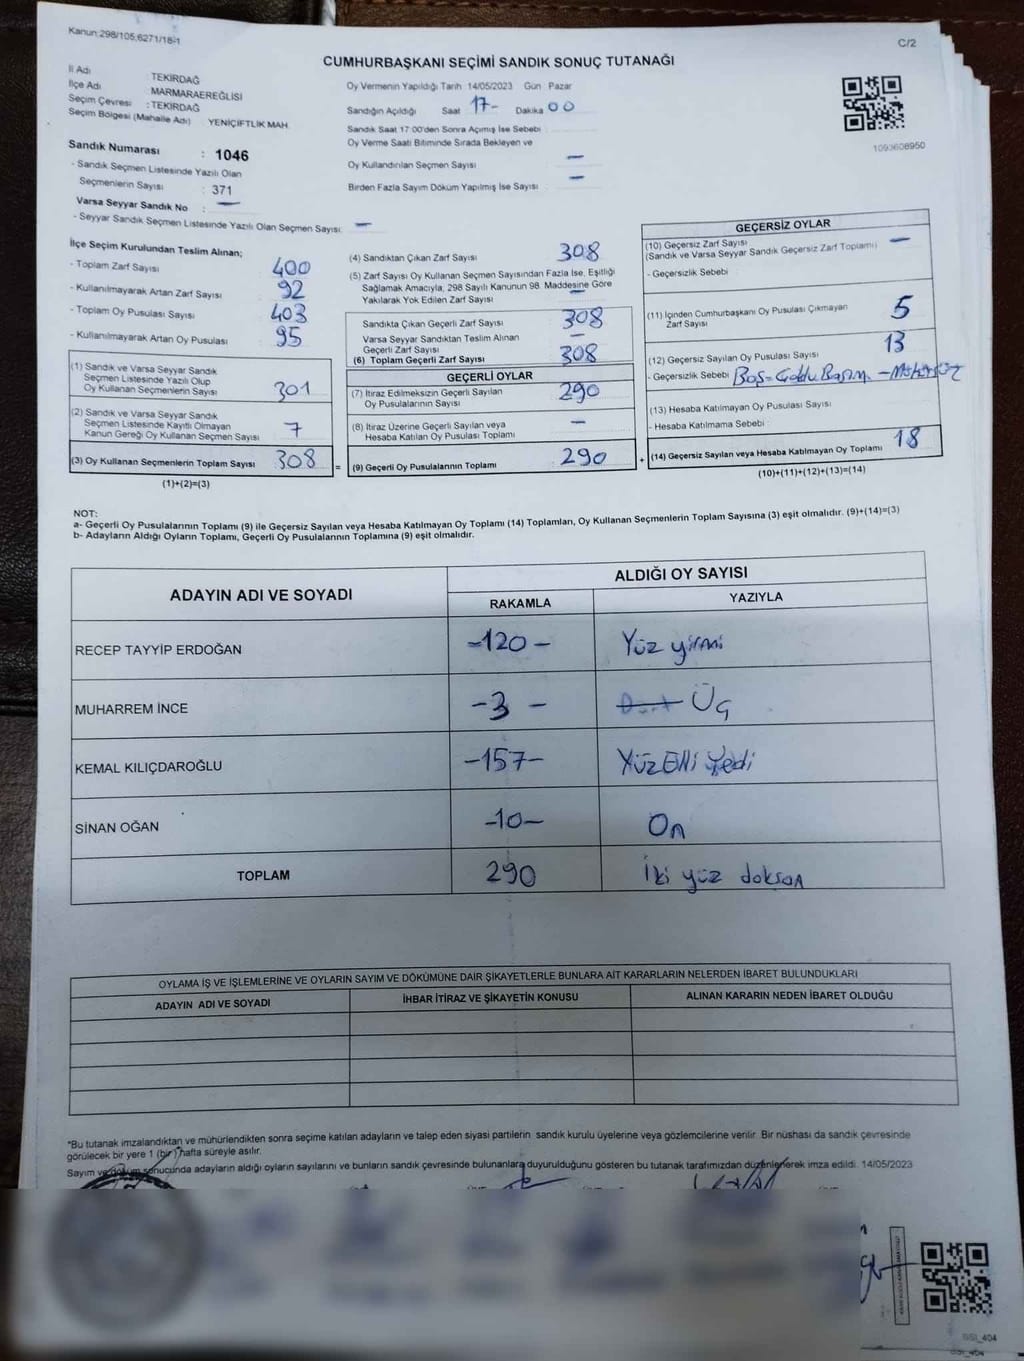 Kanun:298/105,6271/18-1
C/2
CUMHURBAŞKANI SEÇİMİ SANDIK SONUÇ TUTANAĞI
İl Adı TEKİRDAĞ
İlçe Adı MARMARAEREĞLİSİ
Seçim Çevresi : TEKİRDAĞ
Seçim Bölgesi (Mahalle Adı) YENİÇİFTLİK MAH.
Sandık Numarası : 1046
- Sandık Seçmen Listesinde Yazılı Olan
Seçmenlerin Sayısı : 371
Varsa Seyyar Sandık No : —
- Seyyar Sandık Seçmen Listesinde Yazılı Olan Seçmen Sayısı: —
Oy Vermenin Yapıldığı Tarih 14/05/2023 Gün : Pazar
Sandığın Açıldığı Saat 17- Dakika 00
Sandık Saat 17:00'den Sonra Açımış İse Sebebi
Oy Verme Saati Bitiminde Sırada Bekleyen ve
Oy Kullandırılan Seçmen Sayısı —
Birden Fazla Sayım Döküm Yapılmış İse Sayısı —
1093608950
İlçe Seçim Kurulundan Teslim Alınan;
- Toplam Zarf Sayısı 400
- Kullanılmayarak Artan Zarf Sayısı 92
- Toplam Oy Pusulası Sayısı 403
- Kullanılmayarak Artan Oy Pusulası 95
(1) Sandık ve Varsa Seyyar Sandık
Seçmen Listesinde Yazılı Olup
Oy Kullanan Seçmenlerin Sayısı 301
(2) Sandık ve Varsa Seyyar Sandık
Seçmen Listesinde Kayıtlı Olmayan
Kanun Gereği Oy Kullanan Seçmen Sayısı 7
(3) Oy Kullanan Seçmenlerin Toplam Sayısı 308 =
(1)+(2)=(3)
(4) Sandıktan Çıkan Zarf Sayısı 308
(5) Zarf Sayısı Oy Kullanan Seçmen Sayısından Fazla İse, Eşitliği
Sağlamak Amacıyla, 298 Sayılı Kanunun 98. Maddesine Göre
Yakılarak Yok Edilen Zarf Sayısı —
Sandıkta Çıkan Geçerli Zarf Sayısı 308
Varsa Seyyar Sandıktan Teslim Alınan
Geçerli Zarf Sayısı —
(6) Toplam Geçerli Zarf Sayısı 308
GEÇERLİ OYLAR
(7) İtiraz Edilmeksizin Geçerli Sayılan
Oy Pusulalarının Sayısı 290
(8) İtiraz Üzerine Geçerli Sayılan veya
Hesaba Katılan Oy Pusulası Toplamı —
(9) Geçerli Oy Pusulalarının Toplamı 290 +
GEÇERSİZ OYLAR
(10) Geçersiz Zarf Sayısı —
(Sandık ve Varsa Seyyar Sandık Geçersiz Zarf Toplamı)
- Geçersizlik Sebebi
(11) İçinden Cumhurbaşkanı Oy Pusulası Çıkmayan
Zarf Sayısı 5
(12) Geçersiz Sayılan Oy Pusulası Sayısı 13
- Geçersizlik Sebebi
(13) Hesaba Katılmayan Oy Pusulası Sayısı
- Hesaba Katılmama Sebebi
(14) Geçersiz Sayılan veya Hesaba Katılmayan Oy Toplamı 18
(10)+(11)+(12)+(13)=(14)
NOT:
a- Geçerli Oy Pusulalarının Toplamı (9) ile Geçersiz Sayılan veya Hesaba Katılmayan Oy Toplamı (14) Toplamları, Oy Kullanan Seçmenlerin Toplam Sayısına (3) eşit olmalıdır. (9)+(14)=(3)
b- Adayların Aldığı Oyların Toplamı, Geçerli Oy Pusulalarının Toplamına (9) eşit olmalıdır.
ADAYIN ADI VE SOYADI
ALDIĞI OY SAYISI
RAKAMLA YAZIYLA
RECEP TAYYİP ERDOĞAN -120- Yüz yirmi
MUHARREM İNCE -3- Üç
KEMAL KILIÇDAROĞLU -157- Yüz Elli Yedi
SİNAN OĞAN -10- On
TOPLAM 290 İki yüz doksan
OYLAMA İŞ VE İŞLEMLERİNE VE OYLARIN SAYIM VE DÖKÜMÜNE DAİR ŞİKAYETLERLE BUNLARA AİT KARARLARIN NELERDEN İBARET BULUNDUKLARI
ADAYIN ADI VE SOYADI İHBAR İTİRAZ VE ŞİKAYETİN KONUSU ALINAN KARARIN NEDEN İBARET OLDUĞU
*Bu tutanak imzalandıktan ve mühürlendikten sonra seçime katılan adayların ve talep eden siyasi partilerin sandık kurulu üyelerine veya gözlemcilerine verilir. Bir nüshası da sandık çevresinde
görülecek bir yere 1 (bir) hafta süreyle asılır.
Sayım ve döküm sonucunda adayların aldığı oyların sayılarını ve bunların sandık çevresinde bulunanlara duyurulduğunu gösteren bu tutanak tarafımızdan düzenlenerek imza edildi. 14/05/2023
SSİ_404